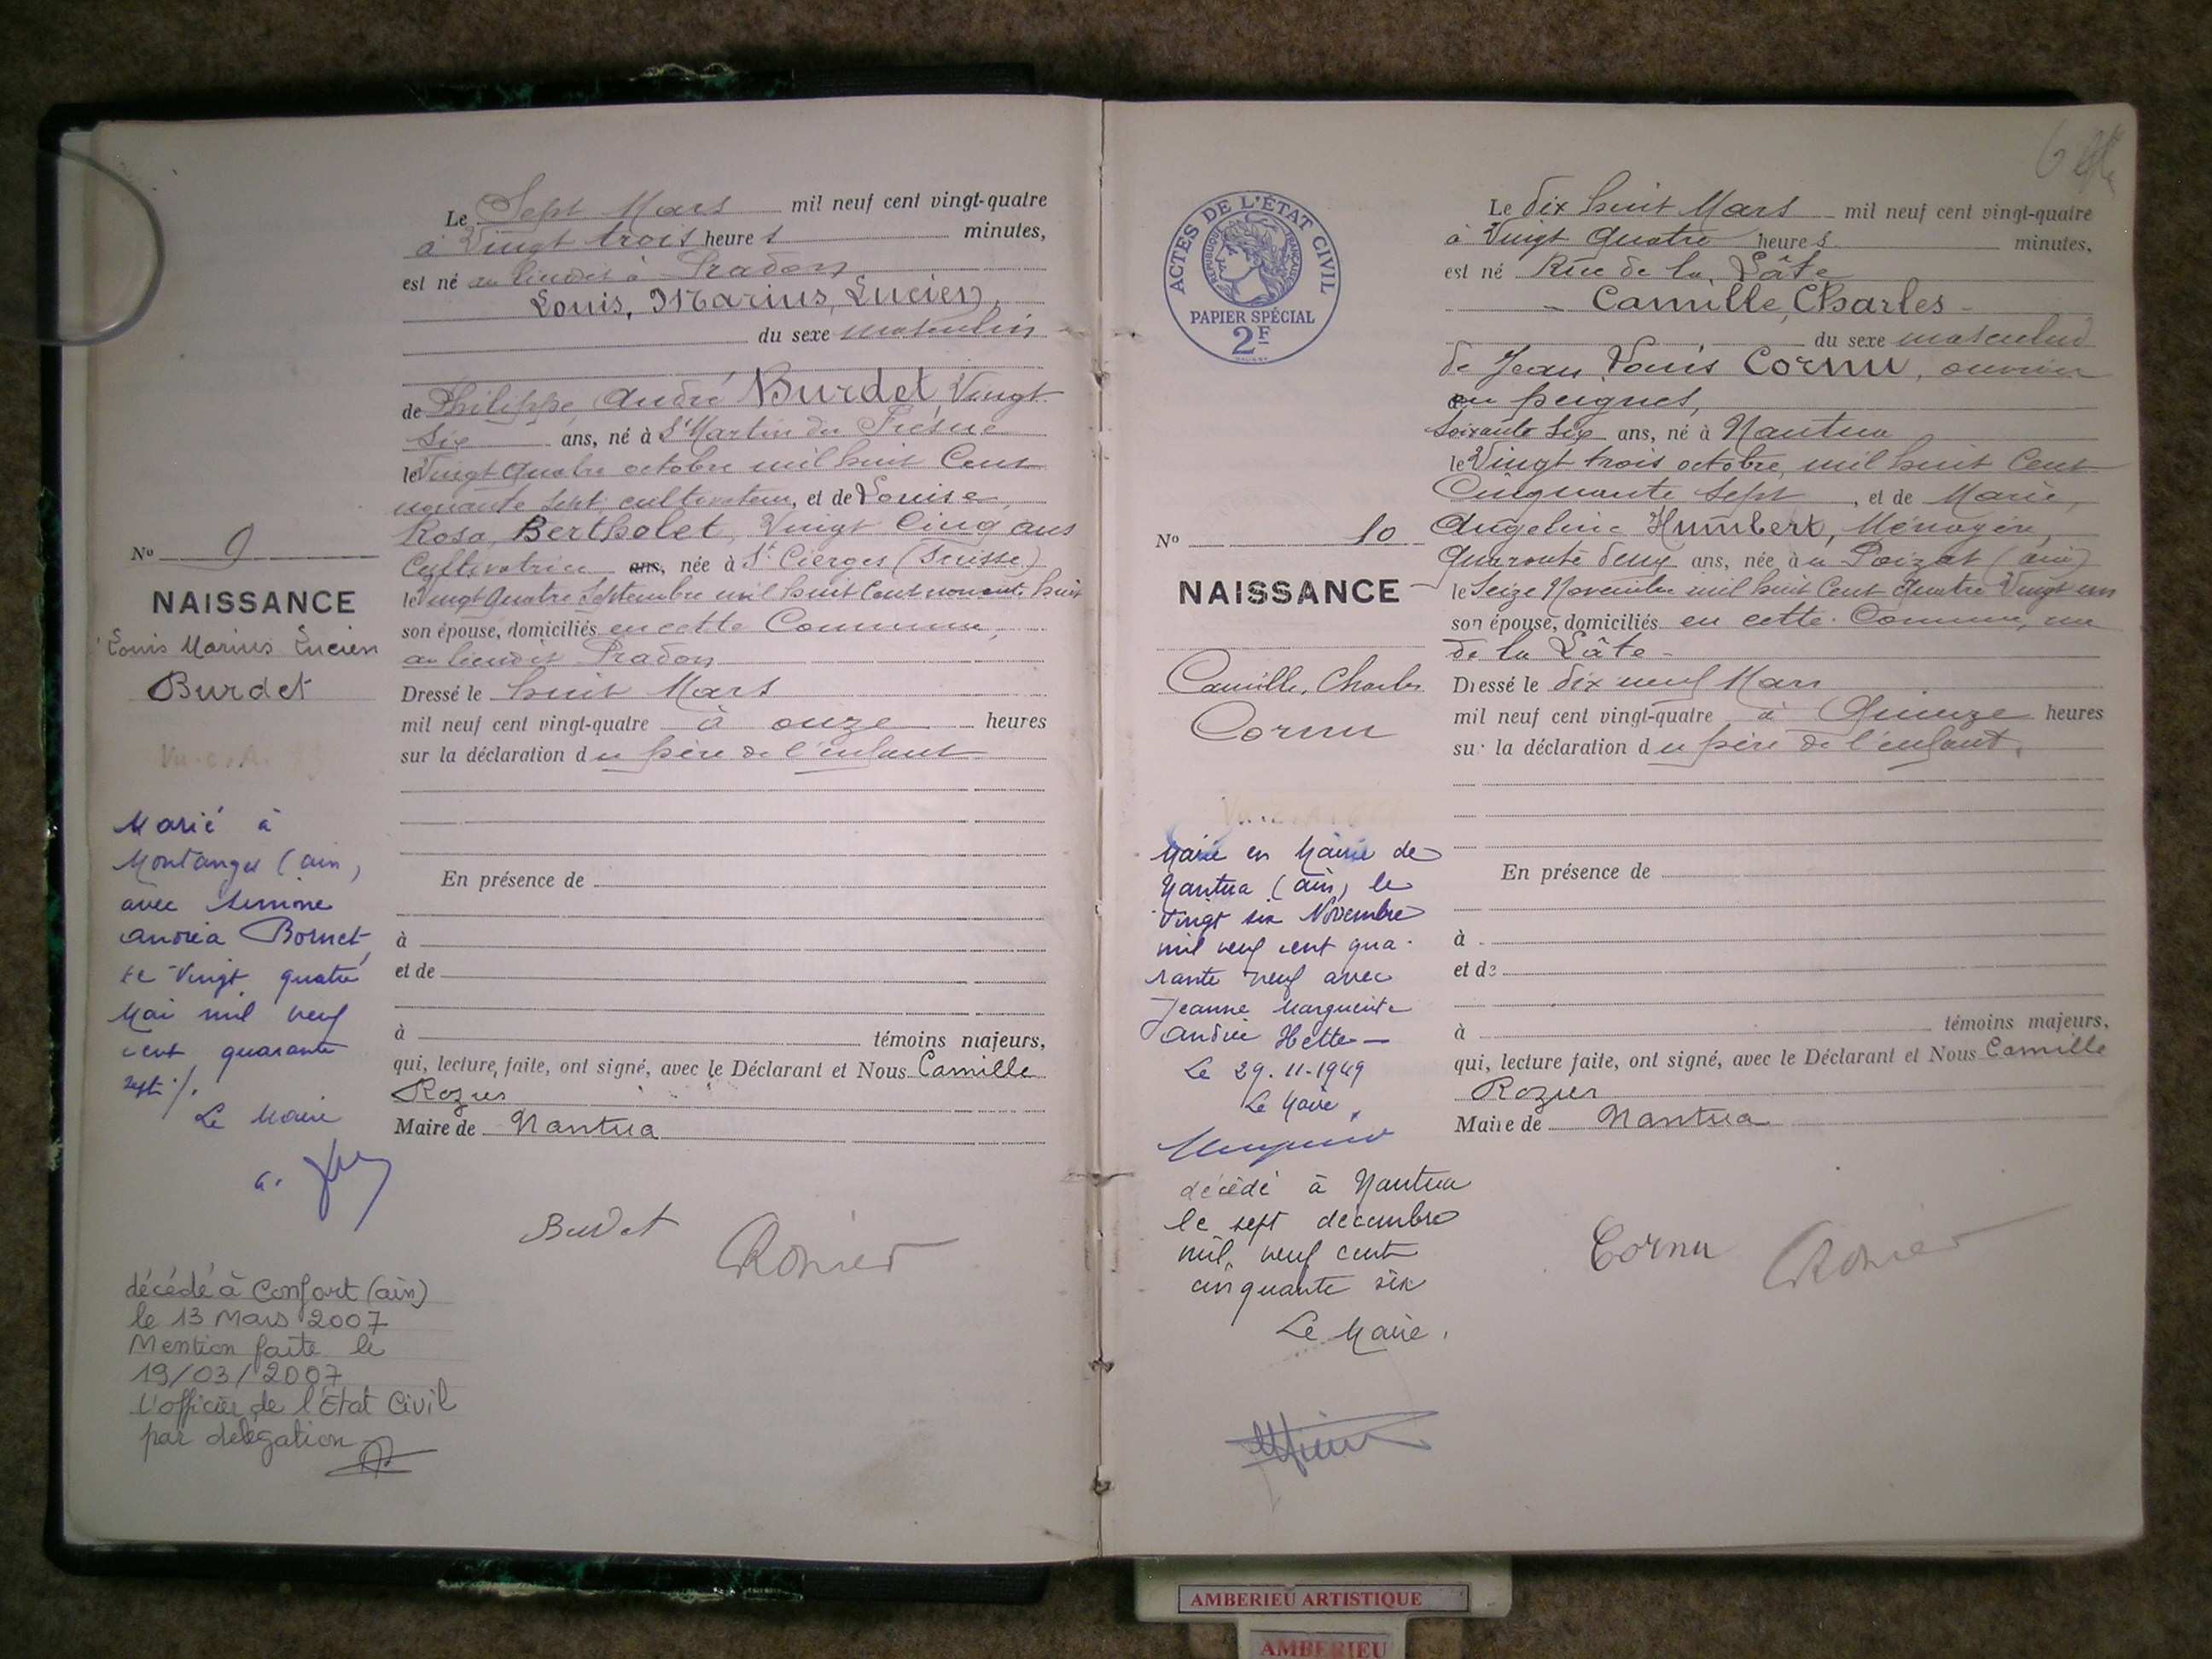 Le Sept Mars mil neuf cent vingt-quatre
à Vingt trois heures minutes,
est né au lieudit à Pradon
Louis, Marius, Lucien,
du sexe masculin
de Philippe, André Burdet, Vingt
Six ans, né à St Martin du Fresne
le Vingt quatre octobre mil huit Cent
nonante sept, cultivateur, et de Louise,
Rosa, Bertholet, Vingt Cinq ans
Cultivatrice ans, née à St Cierges (Suisse)
le Vingt quatre Septembre mil huit Cent nonante huit
son épouse, domiciliés en cette Commune,
au lieudit Pradon
Dressé le huit Mars
mil neuf cent vingt-quatre à onze heures
sur la déclaration du père de l'enfant
En présence de
à
et de
à témoins majeurs,
qui, lecture faite, ont signé, avec le Déclarant et Nous Camille
Rozier
Maire de Nantua
Burdet
Rozier
No 9
NAISSANCE
Louis Marius Lucien
Burdet
Vu
Marié à
Montanges (ain)
avec Simone
andréa Bornet,
le Vingt quatre
Mai mil neuf
cent quarante
sept ./.
Le Maire
décédé à Confort (ain)
le 13 Mars 2007
Mention faite le
19/03/2007
L'officier de l'Etat Civil
par délégation
ACTES DE L'ÉTAT CIVIL
RÉPUBLIQUE FRANÇAISE
PAPIER SPÉCIAL
2F
6
Le dix huit Mars mil neuf cent vingt-quatre
à Vingt Quatre heures minutes,
est né Rue de la Pâte
Camille, Charles
du sexe masculin
de Jean Louis Cornu, ouvrier
en peignes,
Soixante Six ans, né à Nantua
le Vingt trois octobre, mil huit Cent
Cinquante Sept, et de Marie,
Angeline Humbert, Ménagère,
Quarante deux ans, née au Poizat (ain)
le Seize Novembre mil huit Cent Quatre Vingt un
son épouse, domiciliés en cette Commune, rue
de la Pâte
Dressé le dix neuf Mars
mil neuf cent vingt-quatre à Quinze heures
sur la déclaration du père de l'enfant,
En présence de
à
et de
à témoins majeurs,
qui, lecture faite, ont signé, avec le Déclarant et Nous Camille
Rozier
Maire de Nantua
Cornu
Rozier
No 10
NAISSANCE
Camille, Charles
Cornu
Marié en Mairie de
Nantua (ain) le
Vingt six Novembre
mil neuf cent qua-
rante neuf avec
Jeanne Marguerite
andrée Hette —
Le 29.11.1949
Le Maire,
décédé à Nantua
le sept décembre
mil neuf cent
cinquante six
Le Maire,
AMBERIEU ARTISTIQUE
AMBERIEU